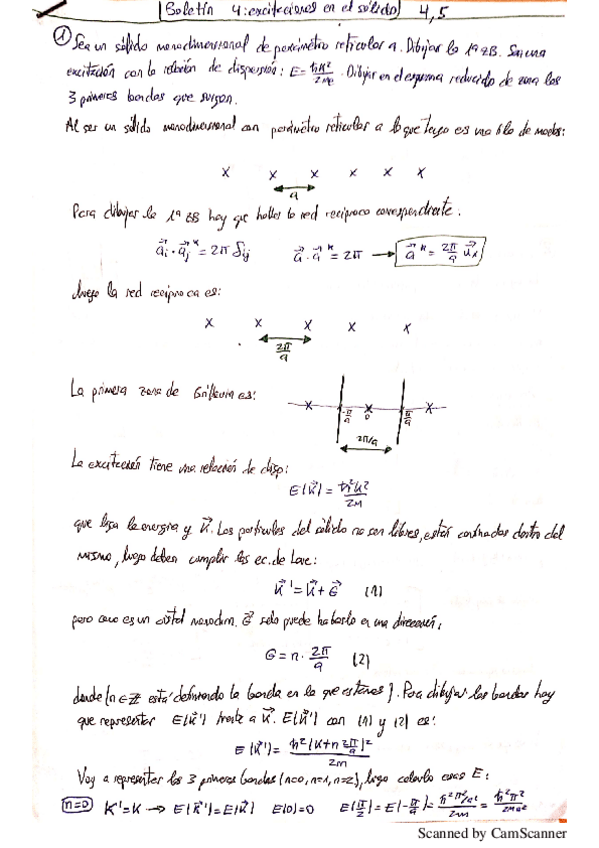 Boletín 4: excitaciones en el sólido 4,5
① Sea un sólido monodimensional de parámetro reticular a. Dibujar la 1ª ZB. Sea una
excitación con la relación de dispersión: E = ħk²/2me. Dibujar en el esquema reducido de zona las
3 primeras bandas que surgen.
Al ser un sólido monodimensional con parámetro reticular a lo que tengo es una fila de nodos:
x x x x x x
a
Para dibujar la 1ª BB hay que hallar la red recíproca correspondiente.
a⃗i · a⃗j* = 2π δij a⃗ · a⃗* = 2π → a⃗* = 2π/a u⃗x
luego la red recíproca es:
x x x x x
2π/a
La primera zona de Brillouin es:
x x x
-π/a 0 π/a
2π/a
La excitación tiene una relación de disp:
E(k⃗) = ħ²k²/2m
que liga la energía y k⃗. Las partículas del sólido no son libres, están confinadas dentro del
mismo, luego deben cumplir las ec. de Laue:
k⃗' = k⃗ + G⃗ (1)
pero como es un cristal monodim. G⃗ solo puede hacerlo en una dirección:
G = n · 2π/a (2)
donde (n ∈ Z está definiendo la banda en la que estamos). Para dibujar las bandas hay
que representar E(k') frente a k⃗. E(k') con (1) y (2) es:
E(k⃗') = ħ²(k+n 2π/a)²/2m
Voy a representar las 3 primeras bandas (n=0, n=1, n=2), luego calculo E:
n=0 k'=k → E(k⃗')=E(k⃗) E(0)=0 E(π/2)=E(-π/a)= ħ²π²/a²/2m = ħ²π²/2ma²
Scanned by CamScanner